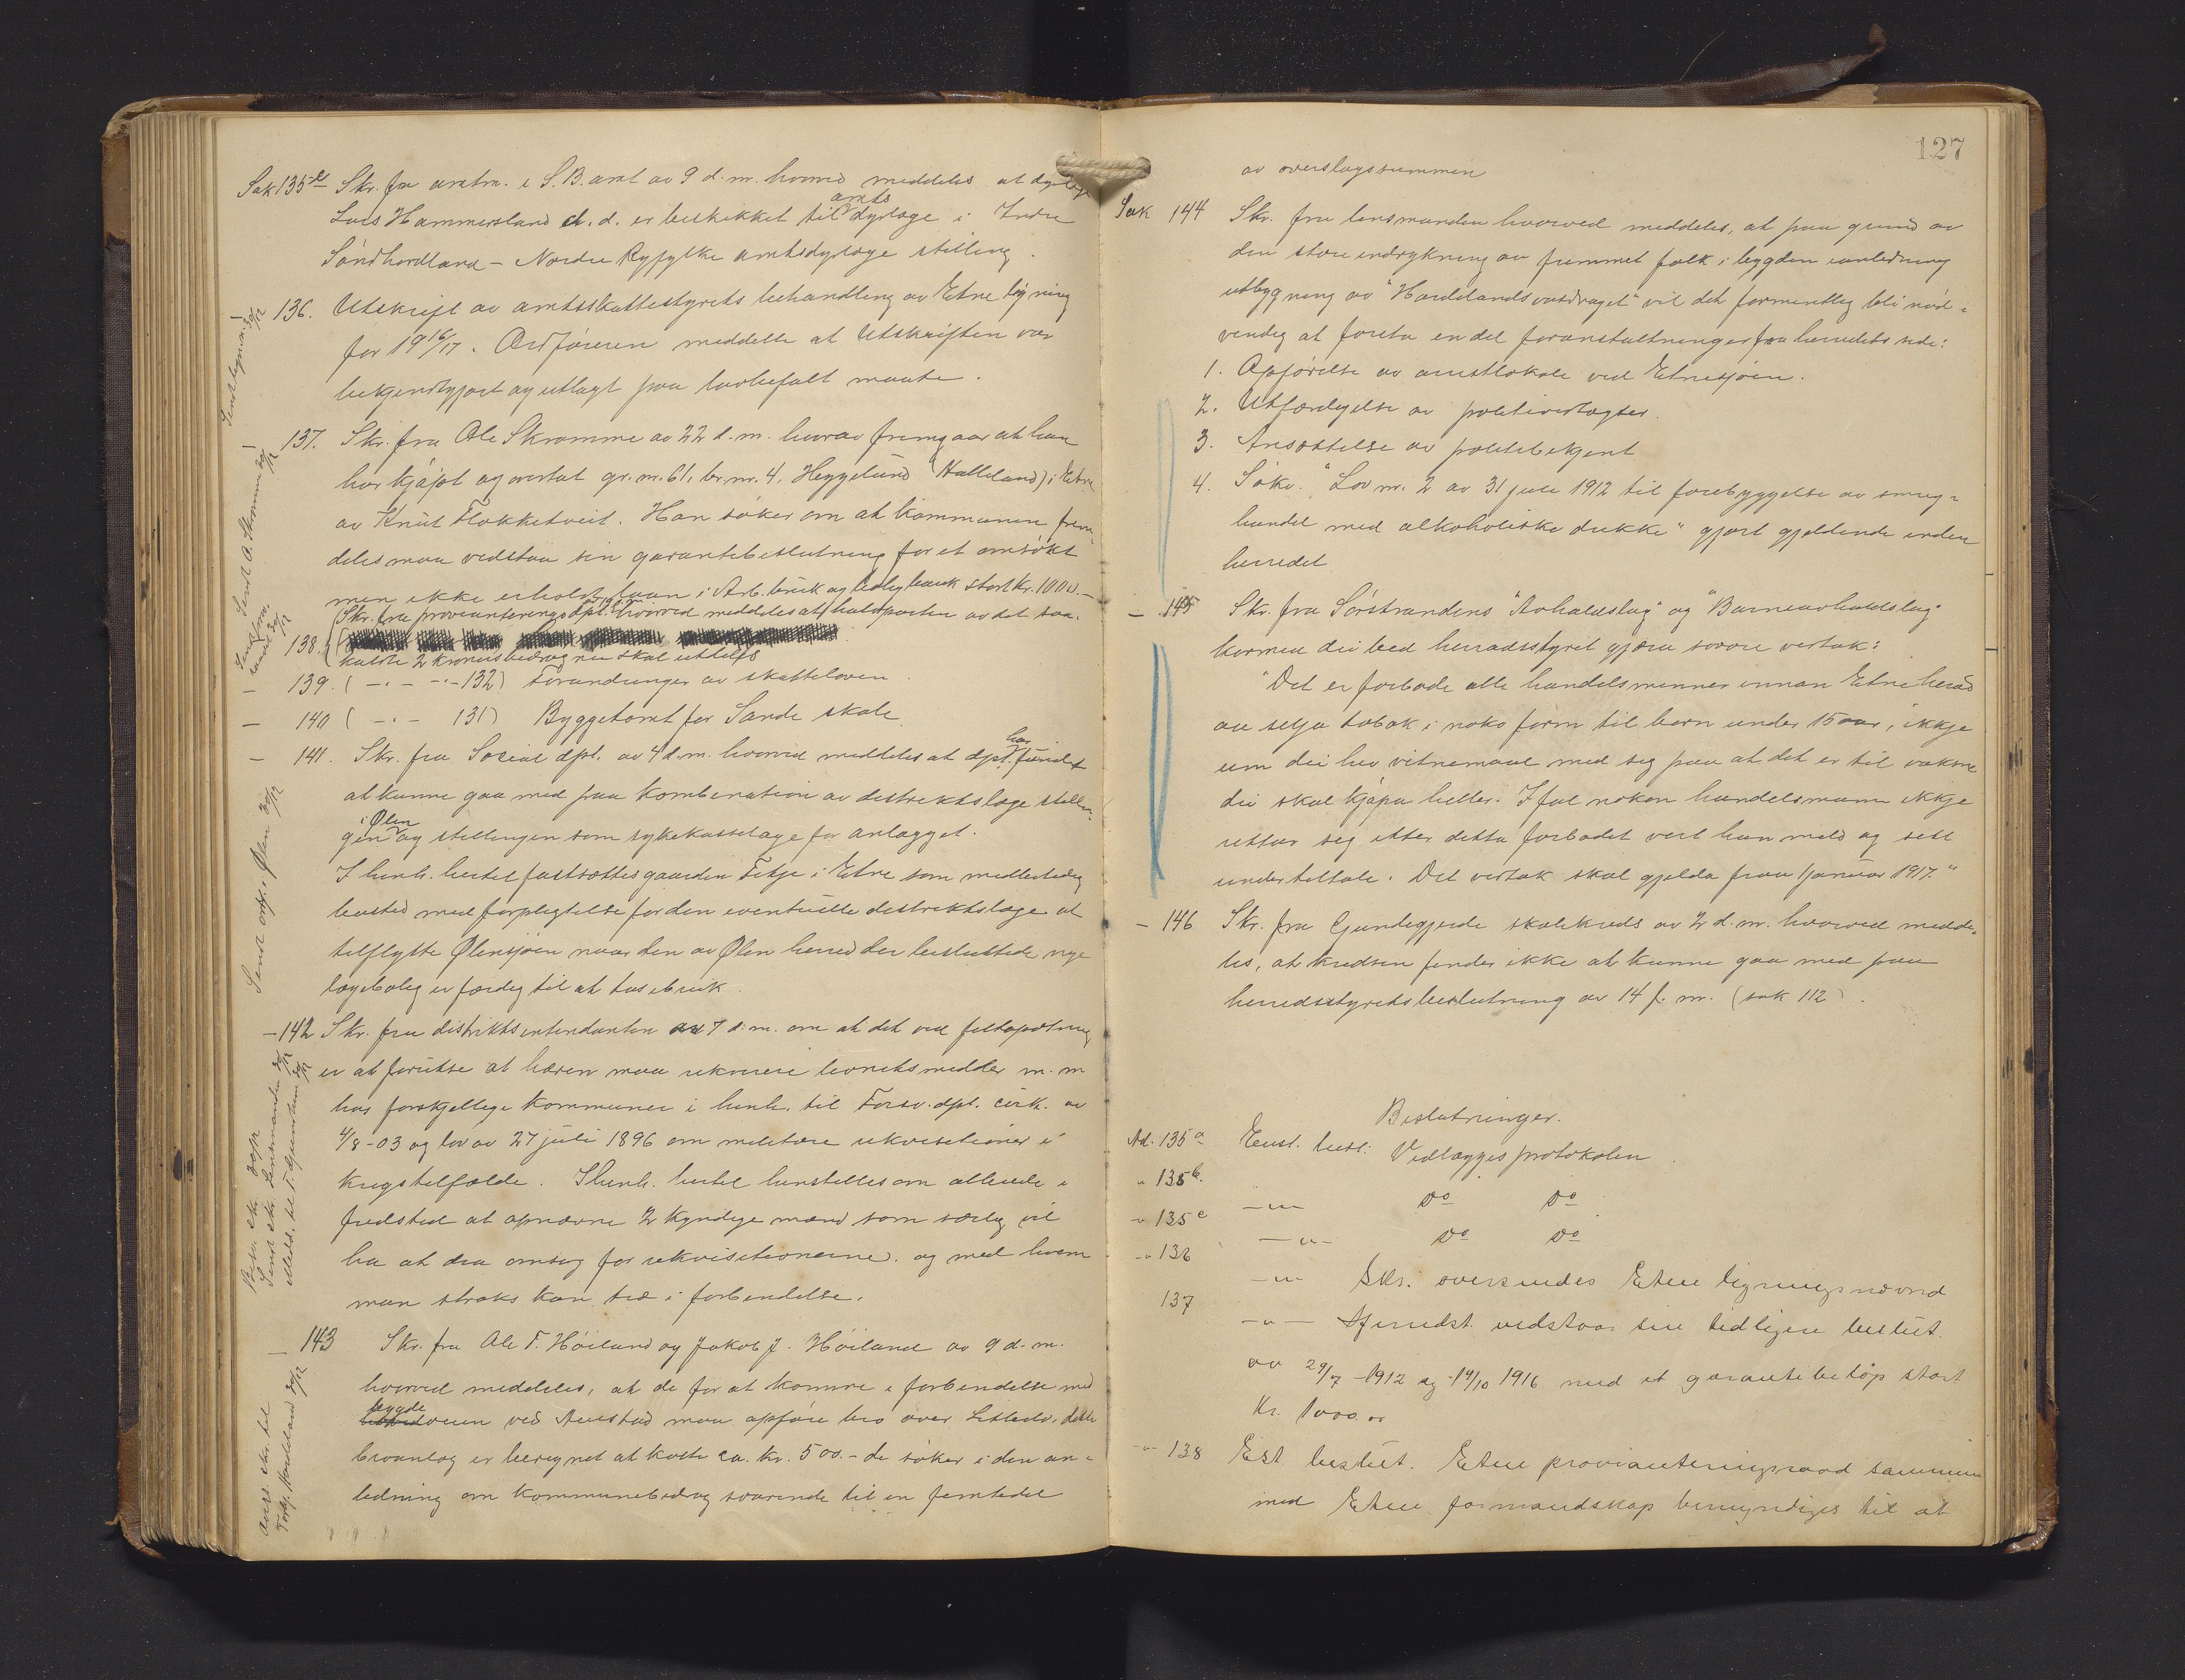 Sak 135 c Skr. fra amtm. i S. B. amt av 9 d. m. hvorved meddeles at dyrlæge
Lars Hammersland d. d. er beskikket til amts dyrlæge i Indre
Søndhordland - Nordre Ryfylke amtsdyrlæge stilling.
136. Utskrift av amtsskattestyrets behandling av Etne ligning
for 1916/17. Ordføreren meddelte at Utskriften var
bekjendtgjort og utlagt paa lovbefalt maate.
137. Skr. fra Ole Skromme av 22 d. m. hvorav fremgaar at han
har kjøpt og overtat gr. nr. 61, br. nr. 4, Heggelund (Halleland) i Etne
av Knut Flokketveit. Han søker om at kommunen frem-
deles maa vedstaa sin garantibeslutning for et ansøkt
men ikke erholdt laan i Arb. bruk og bolig bank stort kr. 1000.-
138. (Skr. fra provianterings dpt. hvorved meddeles at halvparten av det saa-
kaldte 2 kroners bidrag nu skal utdeles
- 139. ( -"- -"- 132) Forandringer av skatteloven.
- 140 ( -"- 131) Byggetomt for Sande skole.
- 141. Skr. fra Social dpt. av 4 d. m. hvorved meddeles at dpt. har fundet
at kunne gaa med paa kombination av distriktslæge stillin-
gen i Ølen og stillingen som sykekasselæge for anlægget.
I henh. hertil fastsættes gaarden Fitje i Etne som midlertidig
bosted med forpligtelse for den eventuelle distriktslæge at
tilflytte Ølensjøen naar den av Ølen herred der besluttede nye
lægebolig er færdig til at tas i bruk.
- 142 Skr. fra distriktsintendanten av 7 d. m. om at det ved feltopsetning
er at forutse at hæren maa rekvirere levnetsmidler m. m
hos forskjellige kommuner i henh. til Forsv. dpt. cirk. av
4/8-03 og lov av 27 juli 1896 om militære rekvisitioner i
krigstilfælde. I henh. hertil henstilles om allerede i
fredstid at opnævne 2 kyndige mænd som særlig vil
ha at dra omsorg for rekvisitionerne. og med hvem
man straks kan træ i forbindelse.
- 143 Skr. fra Ole T. Høiland og Jakob J. Høiland av 9 d. m.
hvorved meddeles, at de for at komme i forbindelse med
bygdeveien ved Austad maa opføre bro over Litledr. dette
broanlæg er beregnet at koste ca. kr. 500.- de søker i den an-
ledning om kommunebidrag svarende til en femtedel
Sendt lign.n. 30/12
Sendt O. Skromme 30/12
Sendt ordf. i Ølen 30/12
Sendt skr. Lensmanden 30/12
127
av overslagssummen
Sak 144 Skr. fra lensmanden hvorved meddeles, at paa grund av
den store indrykning av fremmet folk i bygden i anledning
utbygning av "Hardelandsvasdraget" vil det formentlig bli nød-
vendig at foreta en del foranstaltninger fra herredets side:
1. Opførelse av arrestlokale ved Etnesjøen.
2. Utfærdigelse av politivedtægter.
3. Ansættelse av politibetjent
4. Søke "Lov nr. 2 av 31 juli 1912 til forebyggelse av smug-
handel med alkoholiske drikke" gjort gjeldende inden
herredet
- 145 Skr. fra Sørstrandens "Avhaldslag" og "Barneavhaldslag"
kormed dei bed herradsstyret gjøra sovore vedtak:
"Det er forbode alle handelsmenner innan Etne herad
aa selja tobak i noko form til born under 15 aar, ikkje
um dei hev vitnemaal med seg paa at det er til vaksne
dei skal kjøpa heller. I fal nokon handelsmann ikkje
rettar seg etter detta forbodet vert han meld og sett
under tiltale. Det vedtak skal gjelda fraa 1 januar 1917."
- 146 Skr. fra Gundegjerde skolekreds av 2 d. m. hvorved medde-
les, at kredsen finder ikke at kunne gaa med paa
herredsstyrets beslutning av 14 f. m. (sak 112).
Beslutninger.
Ad. 135 a Enst. besl: Vedlægges protokolen.
" 135 b. -"- do do
-" 135 c -"- do do
-" 136 -"- Skr. oversendes Etne ligningsnævnd
137 -"- Herredst. vedstaar sin tidligere beslut.
av 29/7 -1912 og 19/10 1916 med et garantibeløp stort
Kr. 1000.00
-"- 138 Enst. beslut. Etne provianteringsraad sammen
med Etne formandskap bemyndiges til at